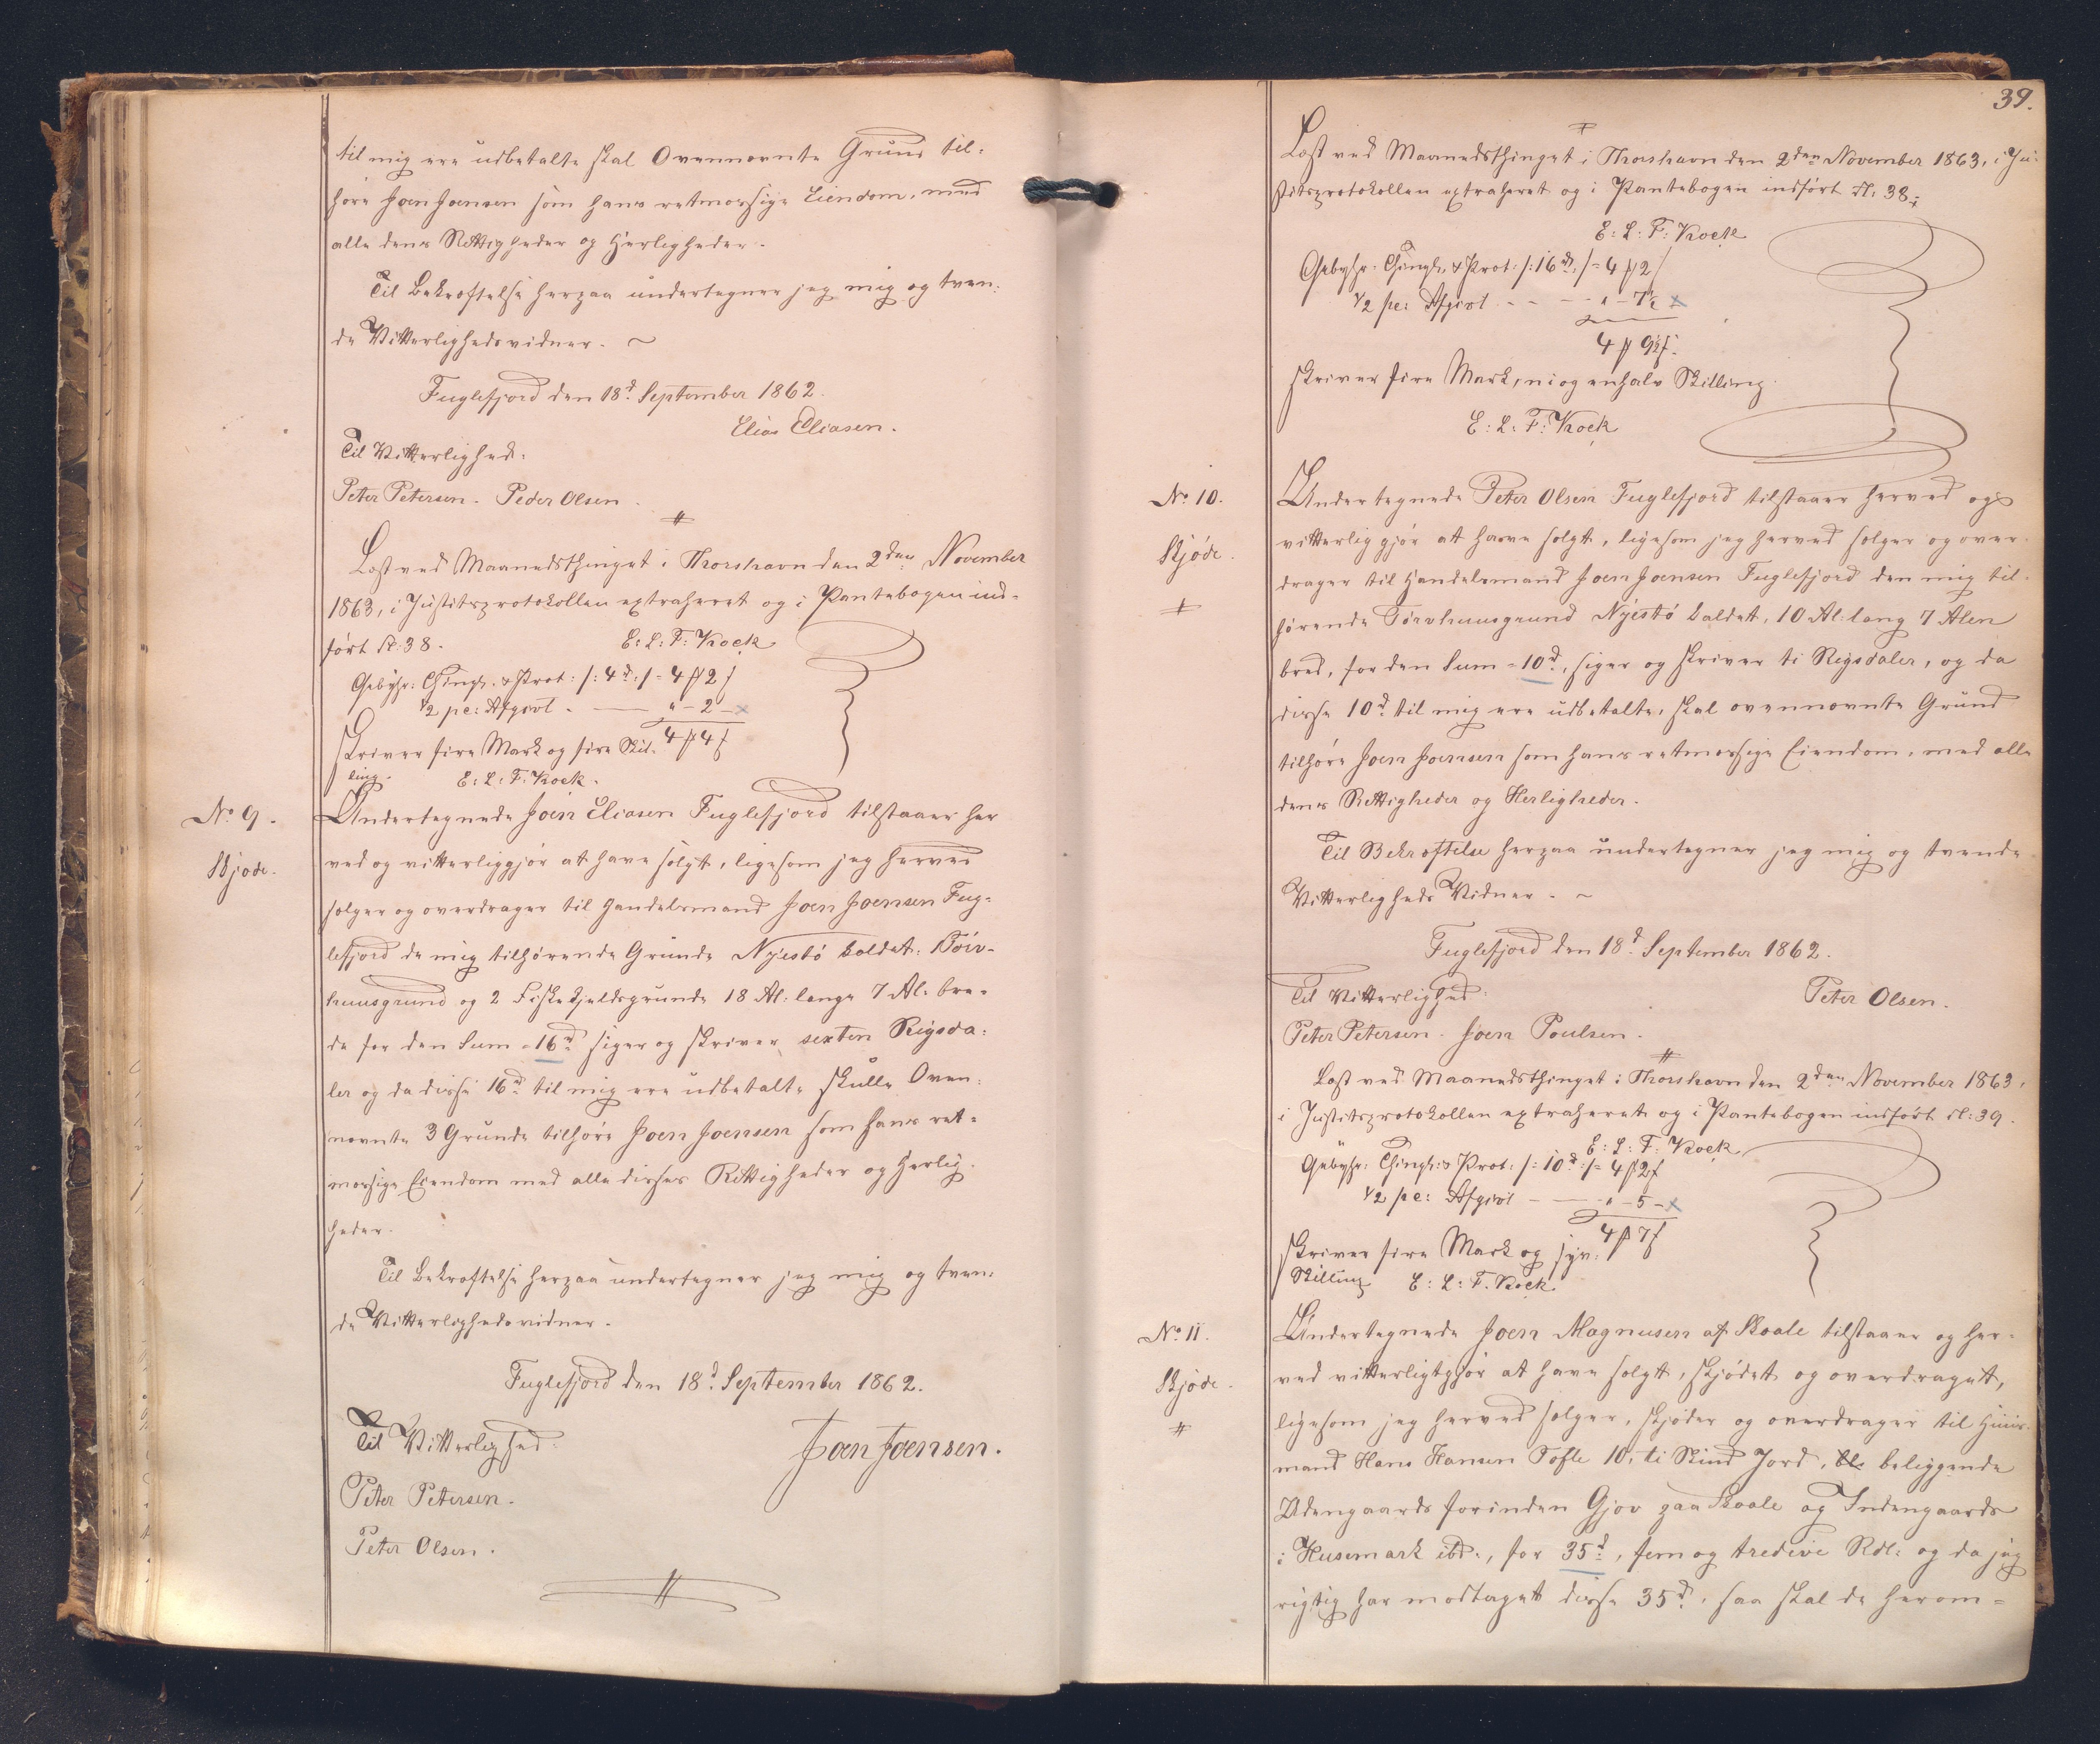 til mig ere udbetalte skal Ovennævnte Grund til-
høre Joen Joensen som hans retmæssige Eiendom, med
alle dens Rettigheder og Herligheder.
Til Bekræftelse herpaa undertegner jeg mig og tven-
de Vitterlighedsvidner. ~
Fuglefjord den 18d September 1862.
Elias Eliasen.
Til Vitterlighed:
Peter Petersen. Peder Olsen.
Læst ved Maanedsthinget i Thorshavn den 2den November
1863, i Justitsprotokollen extraheret og i Pantebogen ind-
ført fl: 38.
E: L: F: Kock
Gebyhr: Thingl. & Prot: /: 4d :/ = 4 ß 2 f
1/2 pc: Afgivt . — " - 2 - x
4 ß 4 f
Skriver fire Mark og fire Skil-
ling.
E: L: F. Kock.
No 9.
Skjøde.
Undertegnede Joen Eliasen Fuglefjord tilstaaer her
ved og vitterliggjør at have solgt, ligesom jeg herved
sælger og overdrager til Handelsmand Joen Joensen Fug-
lefjord de mig tilhørende Grunde Nýestø kaldet: 1 Törv-
huusgrund og 2 Fiskekjeldsgrunde 18 Al: lange 7 Al: bre-
de for den Sum = 16d siger og skriver sexten Rigsda-
ler og da disse 16d til mig ere udbetalte skulle Oven-
nævnte 3 Grunde tilhøre Joen Joensen som hans ret-
mæssige Eiendom med alle disses Rettigheder og Herlig-
heder.
Til Bekræftelse herpaa undertegner jeg mig og tven-
de Vitterlighedsvidner.
Fuglefjord den 18d September 1862.
Til Vitterlighed:
Joen Joensen.
Peter Petersen.
Peter Olsen.
39.
Læst ved Maanedsthinget i Thorshavn den 2den November 1863, i Ju-
stitsprotokollen extraheret og i Pantebogen indført fl: 38.
E: L: F: Kock
Gebyhr: Thingl. & Prot: /: 16d :/ = 4 ß 2 f
1/2 pc: Afgivt - - - - " - 7½ x
4 ß 9½ f.
Skriver fire Mark, ni og enhalv Skilling.
E: L: F: Kock
No 10.
Skjøde.
Undertegnede Peter Olsen Fuglefjord tilstaaer herved og
vitterliggjør at have solgt, ligesom jeg herved sælger og over-
drager til Handelsmand Joen Joensen Fuglefjord den mig til-
hørende Törvhuusgrund Nýestø kaldet, 10 Al: lang 7 Alen
bred, for den Sum = 10d, siger og skriver ti Rigsdaler, og da
disse 10d til mig ere udbetalte, skal ovennævnte Grund
tilhøre Joen Joensen som hans retmæssige Eiendom, med alle
dens Rettigheder og Herligheder.
Til Bekræftelse herpaa undertegner jeg mig og tvende
Vitterligheds Vidner. ~
Fuglefjord den 18d September 1862.
Til Vitterlighed:
Peter Olsen.
Peter Petersen. Joen Poulsen.
Læst ved Maanedsthinget i Thorshavn den 2den November 1863,
i Justitsprotokollen extraheret og i Pantebogen indført fl: 39.
E: L: F: Kock
Gebyhr: Thingl: & Prot: /: 10d :/ = 4 ß 2 f
1/2 pc: Afgivt - — " - 5 - x
4 ß 7 f
Skriver fire Mark og syv
Skilling
E: L: F. Kock
No 11.
Skjøde.
Undertegnede Joen Magnusen af Skaale tilstaaer og her-
ved vitterligtgjør at have solgt, skjødet og overdraget,
ligesom jeg herved sælger, skjøder og overdrager til Huus-
mand Hans Hansen Tofte 10, ti Skind Jord, beliggende
Udengaards forinden Gjov paa Skaale og Indengaards
i Husemark ibd., for 35d, fem og tredive Rdl: og da jeg
rigtig har modtaget disse 35d, saa skal de herom-